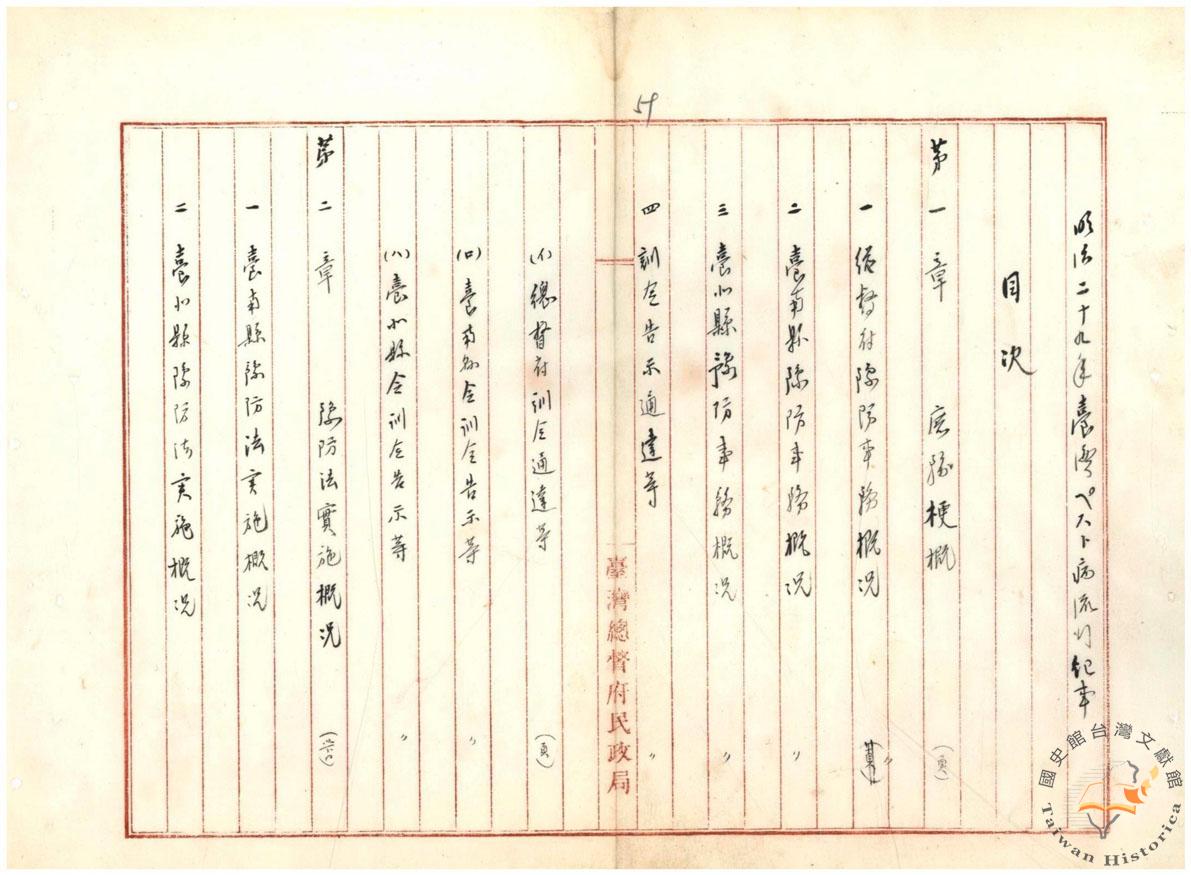 59
明治二十九年臺灣ペスト病流行紀事
目次
第一章 施務梗概 (頁)
一 総督府豫防事務概況 〃
二 臺南縣豫防事務概況 〃
三 臺北縣豫防事務概況 〃
四 訓令告示通達等 〃
(イ) 總督府訓令通達等 (頁)
(ロ) 臺南縣令訓令告示等 〃
(ハ) 臺北縣令訓令告示等 〃
第二章 豫防法實施概況
一 臺南縣豫防法実施概況
二 臺北縣豫防法実施概況
臺灣總督府民政局
國史館台灣文獻館
Taiwan Historica